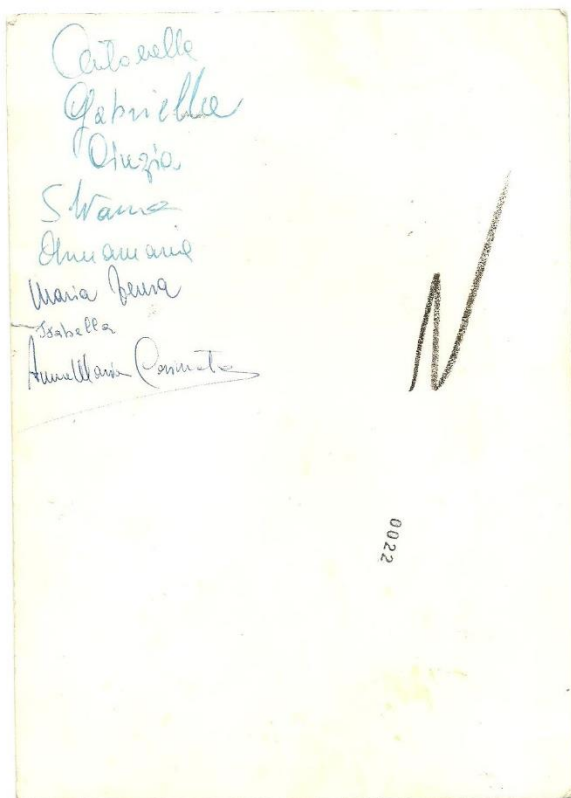 Antonella
Gabriella
Cinzia
Silvana
Annamaria
Maria
Isabella
Anna Maria
N
0022